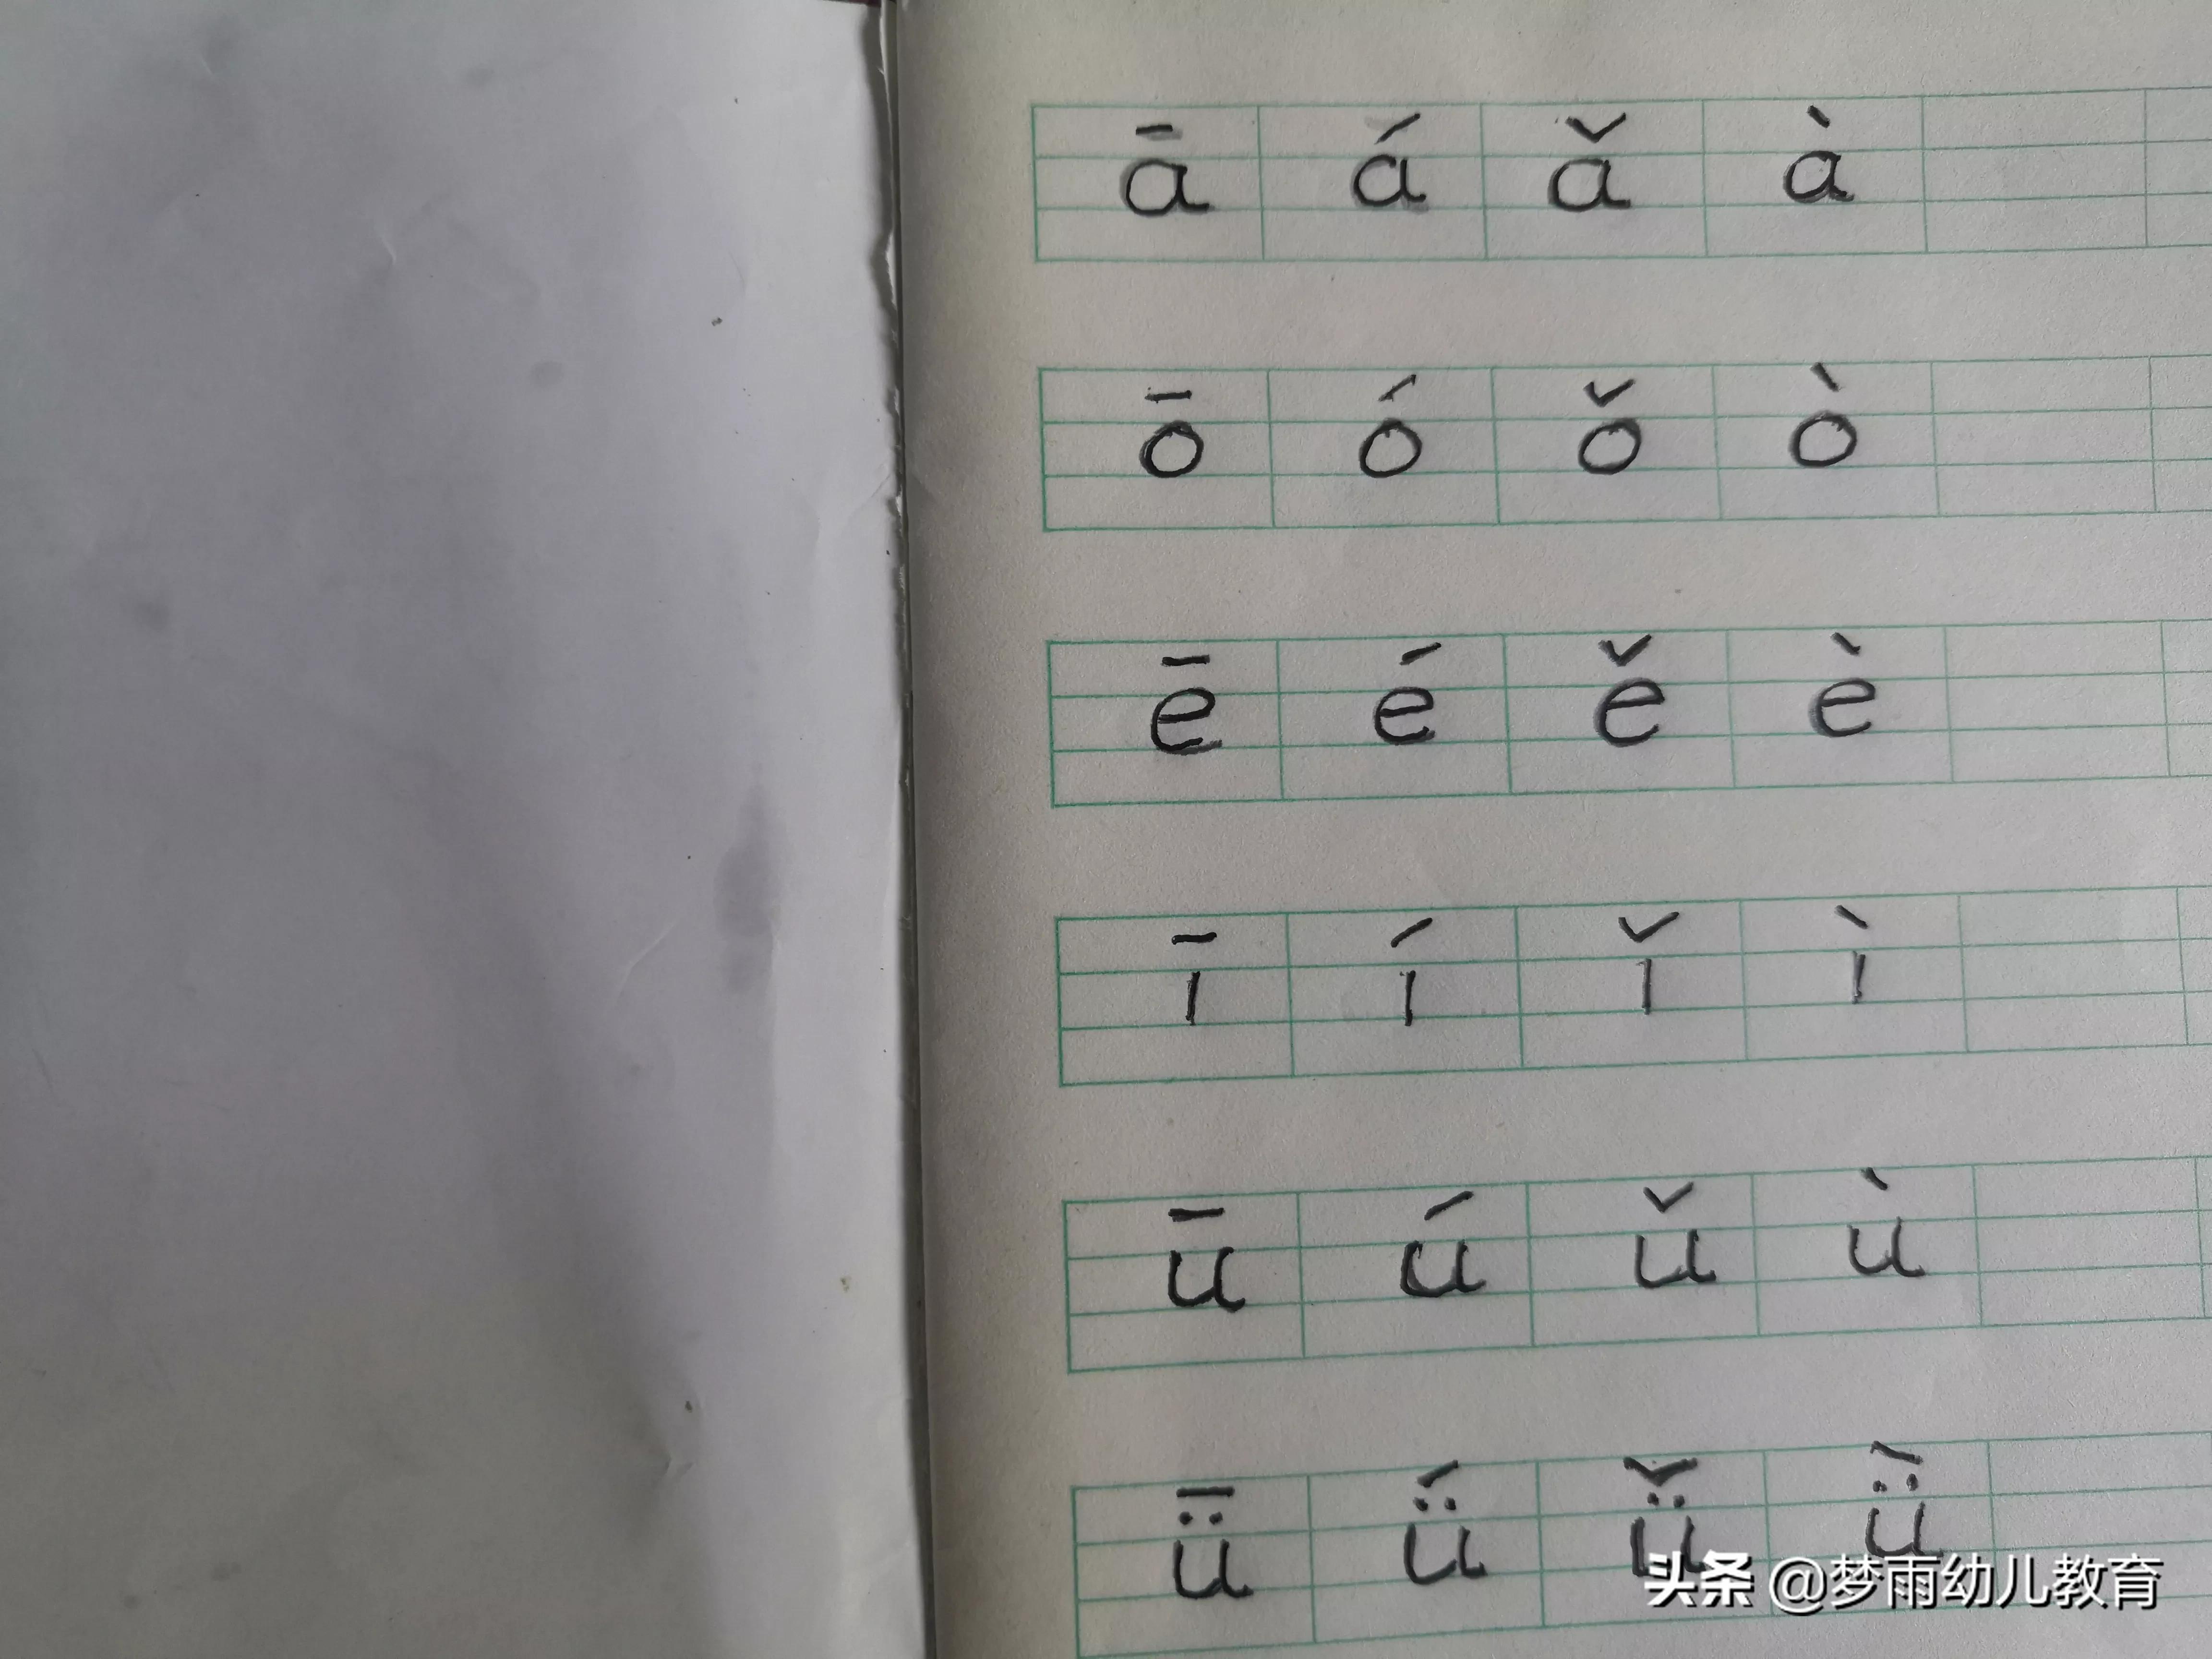 ā á ǎ à
ō ó ǒ ò
ē é ě è
ī í ǐ ì
ū ú ǔ ù
ǖ ǘ ǚ ǜ
头条 @梦雨幼儿教育